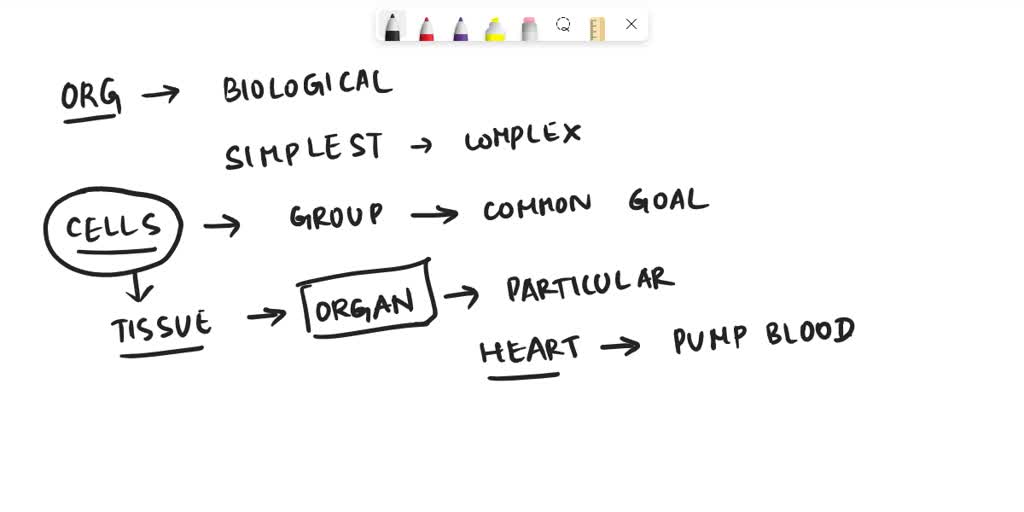 ORG → BIOLOGICAL
SIMPLEST → COMPLEX
CELLS → GROUP → COMMON GOAL
TISSUE → ORGAN → PARTICULAR
HEART → PUMP BLOOD